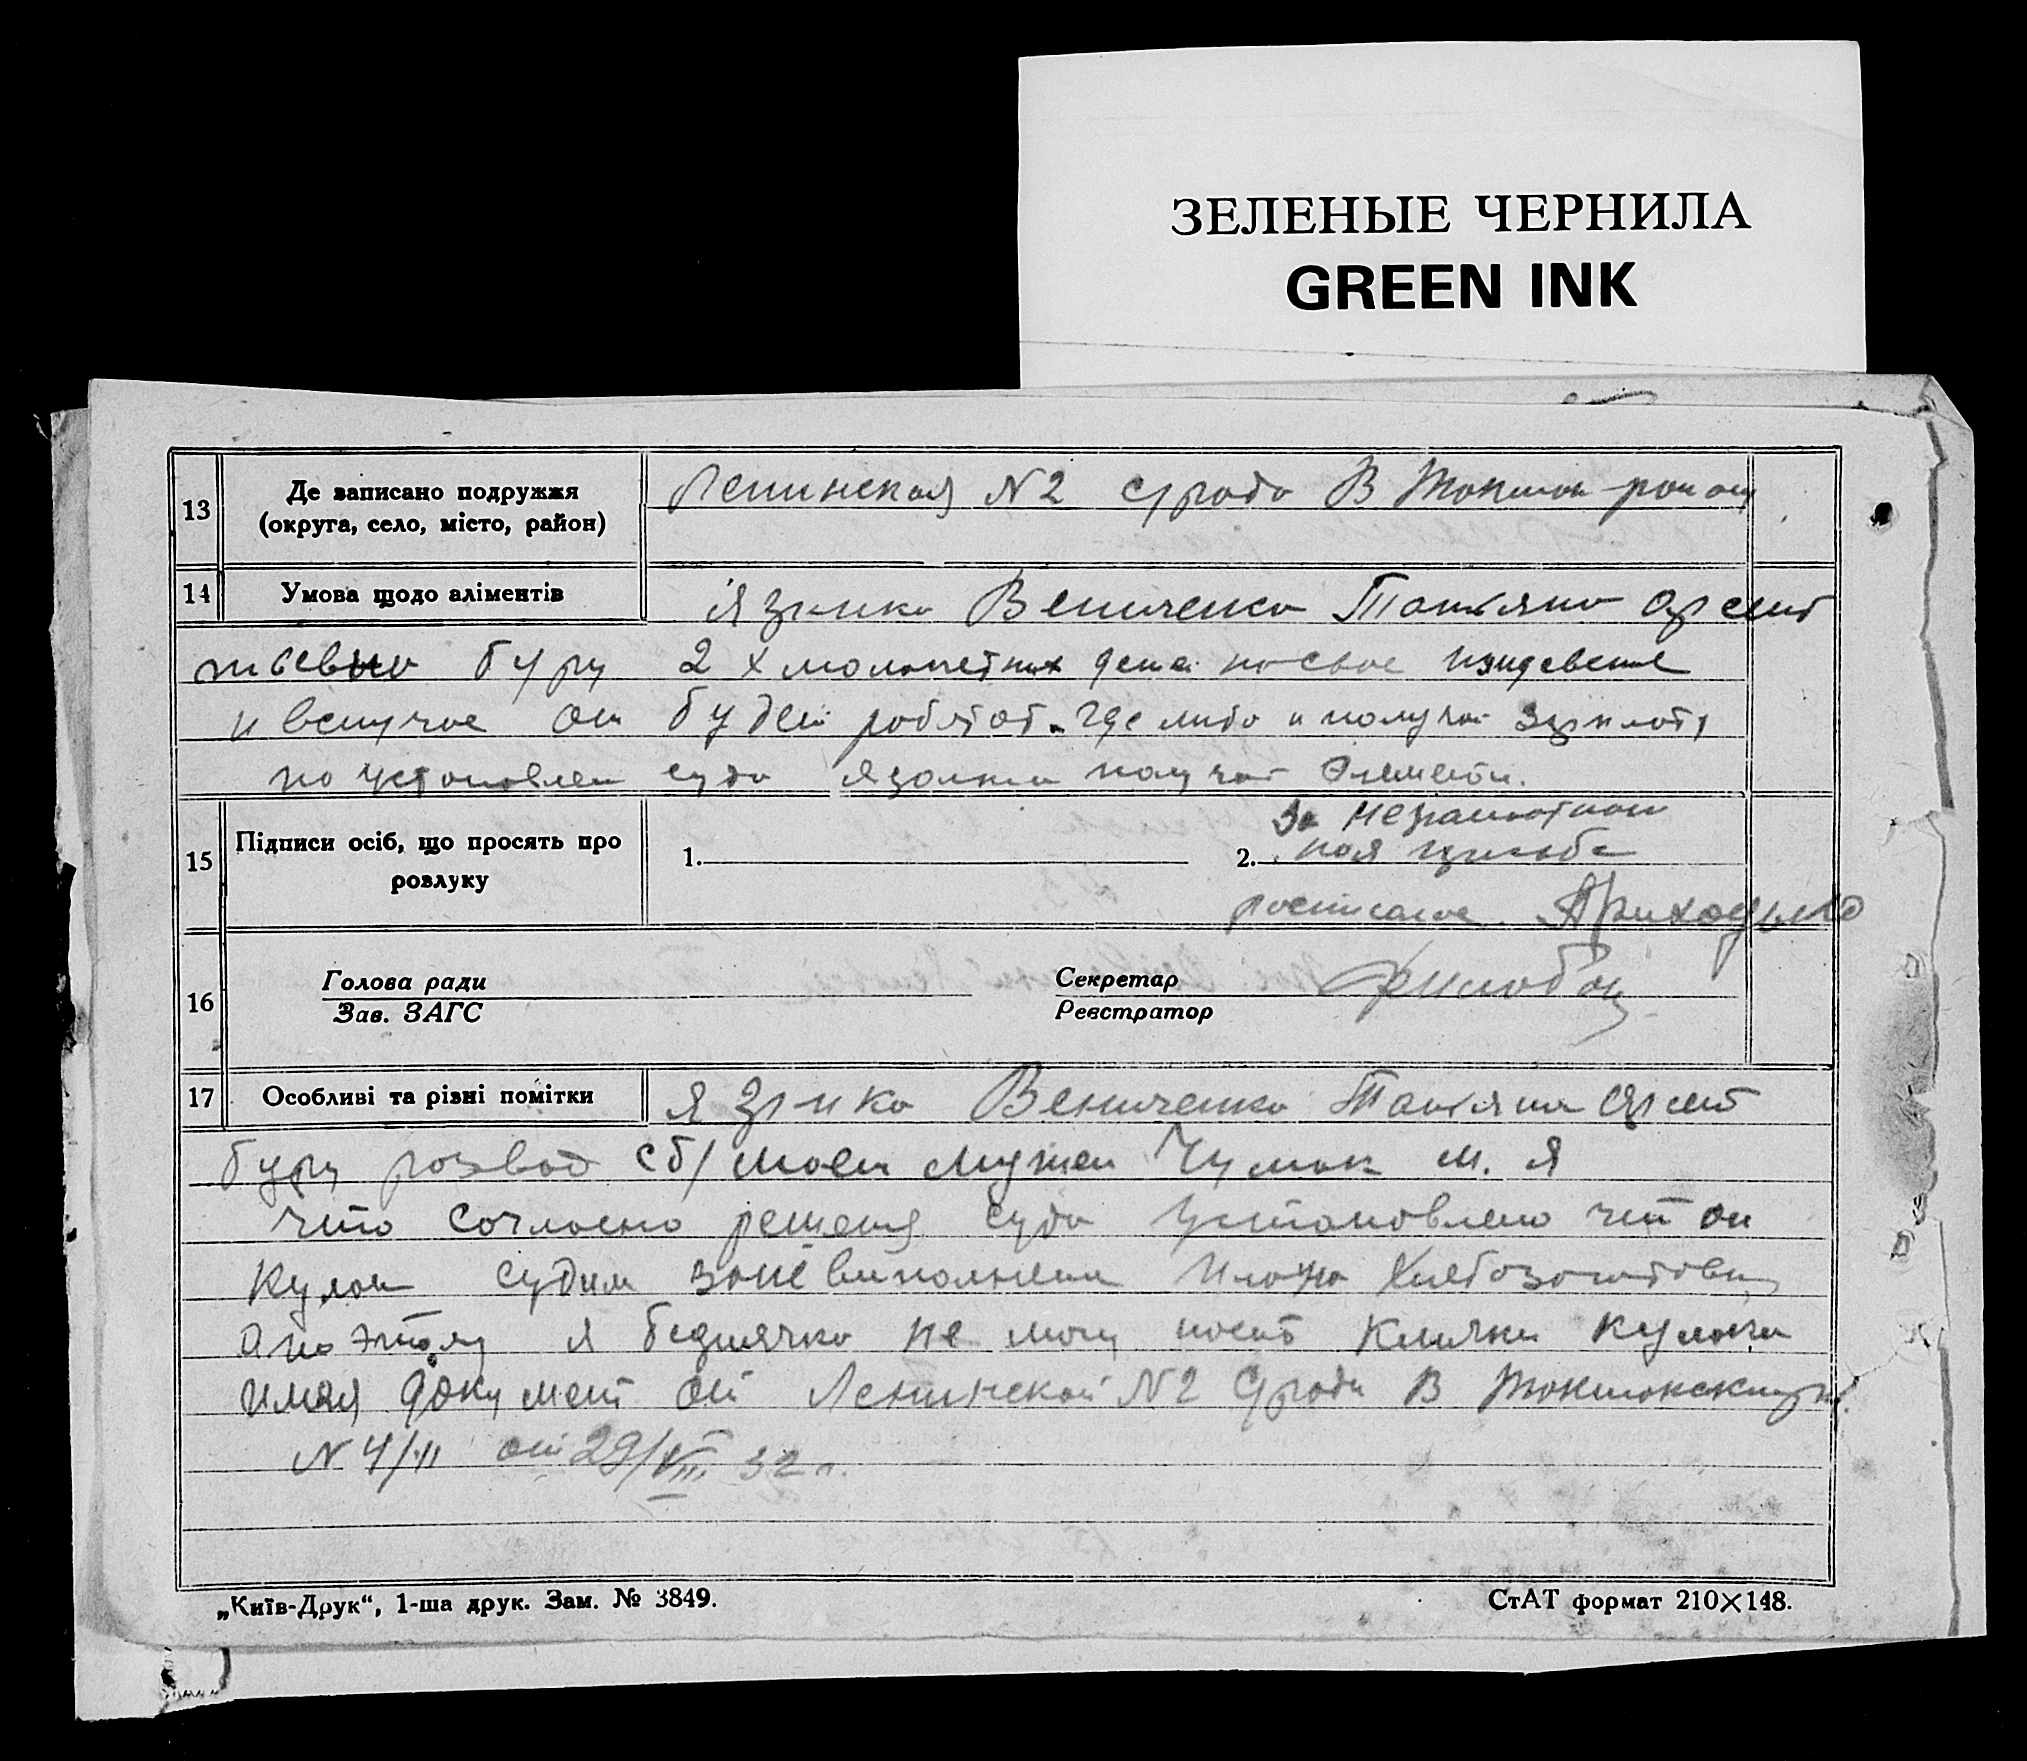 ЗЕЛЕНЫЕ ЧЕРНИЛА
GREEN INK
13
Де записано подружжя
(округа, село, місто, район)
Ленинская N2 с/рада В Токмак район
14
Умова щодо аліментів
я Величенко Татьяна
беру 2 х малолетних на свое
и вслучае он будет работат где либо и получат зарплоту
по установлен суда получат
15
Підписи осіб, що просять про
розлуку
1.
2.
За неграмотной
росписался Приходько
16
Голова ради
Зав. ЗАГС
Секретар
Реєстратор
17
Особливі та різні помітки
я Величенко Татьяна
беру розвод моем мужем Чумак м. я
что согласно решения суда установлено что он
Кулак судим зане виполнения плана Хлебозаготовки
а поэтому я беднячка не могу носит клички кулачки
имея документ от Ленинской N2 с/рады В Токмакский
от 29/VIII 32 г.
„Київ-Друк“, 1-ша друк. Зам. № 3849.
СтАТ формат 210×148.